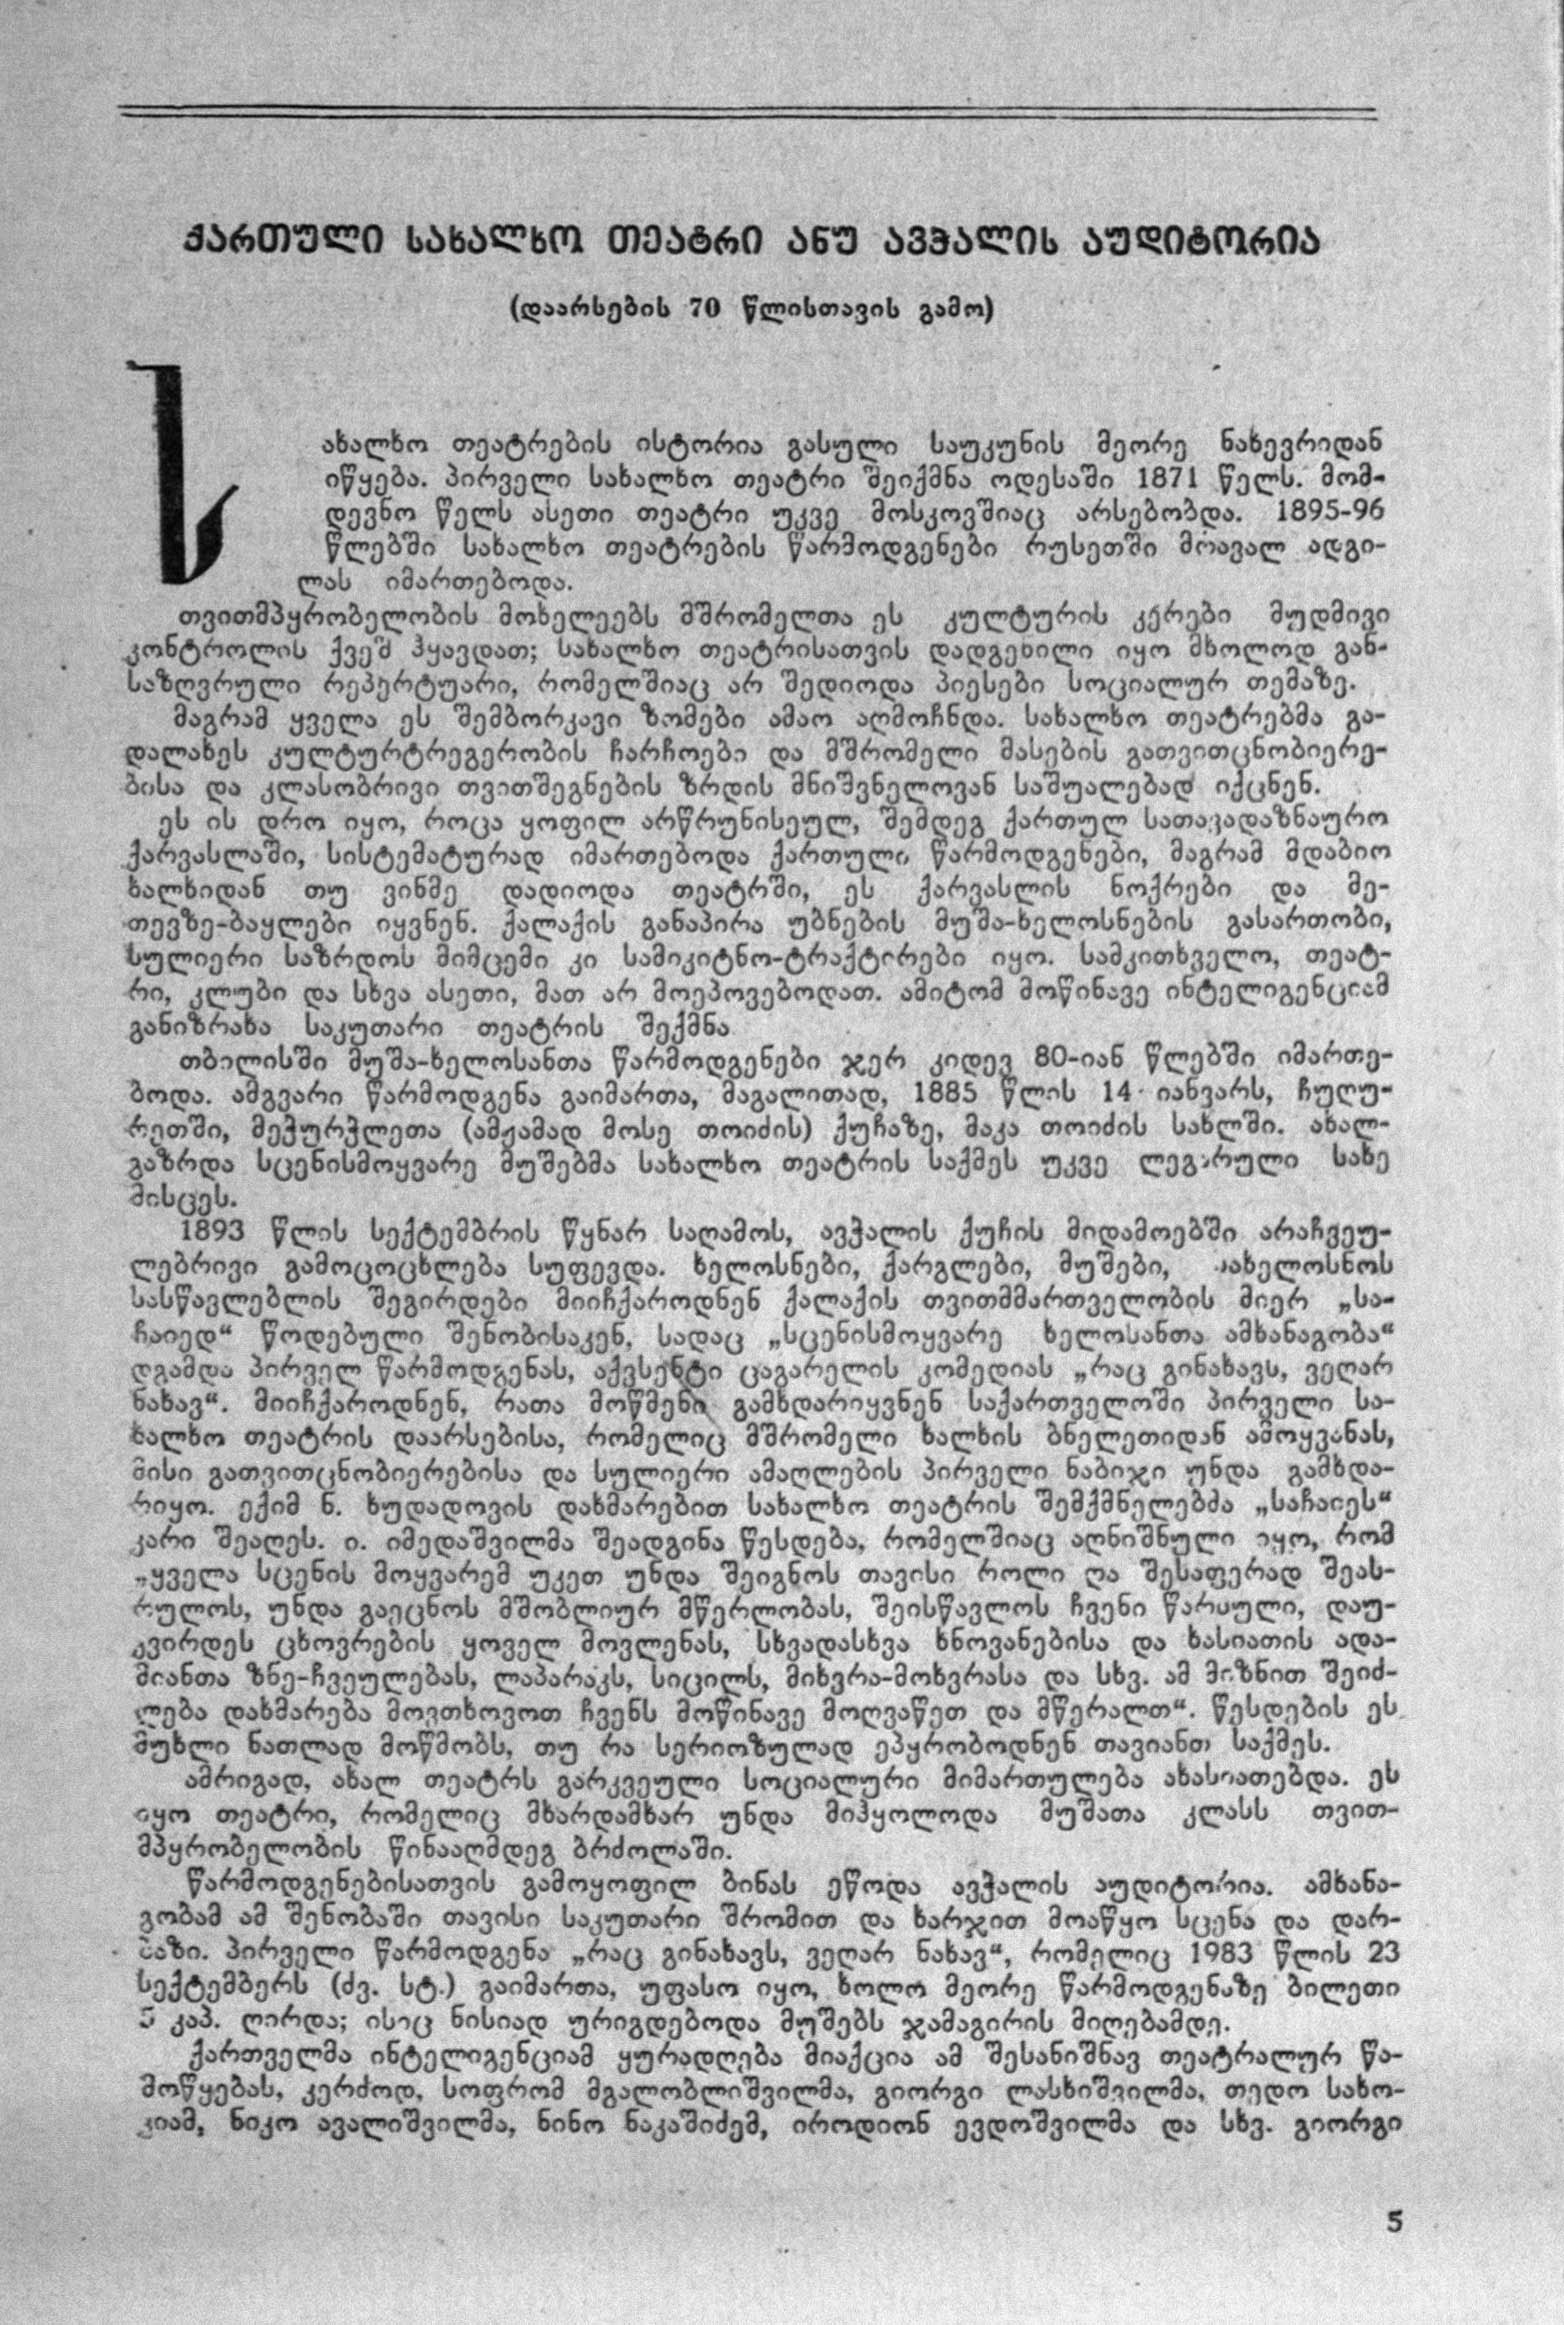 ქართული სახალხო თეატრი ანუ ავჭალის აუდიტორია
(დაარსების 70 წლისთავის გამო)
სახალხო თეატრების ისტორია გასული საუკუნის მეორე ნახევრიდან
იწყება. პირველი სახალხო თეატრი შეიქმნა ოდესაში 1871 წელს. მომ-
დევნო წელს ასეთი თეატრი უკვე მოსკოვშიაც არსებობდა. 1895-96
წლებში სახალხო თეატრების წარმოდგენები რუსეთში მრავალ ადგი-
ლას იმართებოდა.
თვითმპყრობელობის მოხელეებს მშრომელთა ეს კულტურის კერები მუდმივი
კონტროლის ქვეშ ჰყავდათ; სახალხო თეატრისათვის დადგენილი იყო მხოლოდ გან-
საზღვრული რეპერტუარი, რომელშიაც არ შედიოდა პიესები სოციალურ თემაზე.
მაგრამ ყველა ეს შემბორკავი ზომები ამაო აღმოჩნდა. სახალხო თეატრებმა გა-
დალახეს კულტურტრეგერობის ჩარჩოები და მშრომელი მასების გათვითცნობიერე-
ბისა და კლასობრივი თვითშეგნების ზრდის მნიშვნელოვან საშუალებად იქცნენ.
ეს ის დრო იყო, როცა ყოფილ არწრუნისეულ, შემდეგ ქართულ სათავადაზნაურო
ქარვასლაში, სისტემატურად იმართებოდა ქართული წარმოდგენები, მაგრამ მდაბიო
ხალხიდან თუ ვინმე დადიოდა თეატრში, ეს ქარვასლის ნოქრები და მე-
თევზე-ბაყლები იყვნენ. ქალაქის განაპირა უბნების მუშა-ხელოსნების გასართობი,
სულიერი საზრდოს მიმცემი კი სამიკიტნო-ტრაქტირები იყო. სამკითხველო, თეატ-
რი, კლუბი და სხვა ასეთი, მათ არ მოეპოვებოდათ. ამიტომ მოწინავე ინტელიგენციამ
განიზრახა საკუთარი თეატრის შექმნა
თბილისში მუშა-ხელოსანთა წარმოდგენები ჯერ კიდევ 80-იან წლებში იმართე-
ბოდა. ამგვარი წარმოდგენა გაიმართა, მაგალითად, 1885 წლის 14 იანვარს, ჩუღუ-
რეთში, მეჭურჭლეთა (ამჟამად მოსე თოიძის) ქუჩაზე, მაკა თოიძის სახლში. ახალ-
გაზრდა სცენისმოყვარე მუშებმა სახალხო თეატრის საქმეს უკვე ლეგარული სახე
მისცეს.
1893 წლის სექტემბრის წყნარ საღამოს, ავჭალის ქუჩის მიდამოებში არაჩვეუ-
ლებრივი გამოცოცხლება სუფევდა. ხელოსნები, ქარგლები, მუშები, სახელოსნოს
სასწავლებლის შეგირდები მიიჩქაროდნენ ქალაქის თვითმმართველობის მიერ „სა-
ჩაიედ“ წოდებული შენობისაკენ, სადაც „სცენისმოყვარე ხელოსანთა ამხანაგობა“
დგამდა პირველ წარმოდგენას, აქვსენტი ცაგარელის კომედიას „რაც გინახავს, ვეღარ
ნახავ“. მიიჩქაროდნენ, რათა მოწმენი გამხდარიყვნენ საქართველოში პირველი სა-
ხალხო თეატრის დაარსებისა, რომელიც მშრომელი ხალხის ბნელეთიდან ამოყვანას,
მისი გათვითცნობიერებისა და სულიერი ამაღლების პირველი ნაბიჯი უნდა გამხდა-
რიყო. ექიმ ნ. ხუდადოვის დახმარებით სახალხო თეატრის შემქმნელებმა „საჩაიეს“
კარი შეაღეს. ი. იმედაშვილმა შეადგინა წესდება, რომელშიაც აღნიშნული იყო, რომ
„ყველა სცენის მოყვარემ უკეთ უნდა შეიგნოს თავისი როლი და შესაფერად შეას-
რულოს, უნდა გაეცნოს მშობლიურ მწერლობას, შეისწავლოს ჩვენი წარსული, დაუ-
კვირდეს ცხოვრების ყოველ მოვლენას, სხვადასხვა ხნოვანებისა და ხასიათის ადა-
მიანთა ზნე-ჩვეულებას, ლაპარაკს, სიცილს, მიხვრა-მოხვრასა და სხვ. ამ მიზნით შეიძ-
ლება დახმარება მოვთხოვოთ ჩვენს მოწინავე მოღვაწეთ და მწერალთ“. წესდების ეს
მუხლი ნათლად მოწმობს, თუ რა სერიოზულად ეპყრობოდნენ თავიანთ საქმეს.
ამრიგად, ახალ თეატრს გარკვეული სოციალური მიმართულება ახასიათებდა. ეს
იყო თეატრი, რომელიც მხარდამხარ უნდა მიჰყოლოდა მუშათა კლასს თვით-
მპყრობელობის წინააღმდეგ ბრძოლაში.
წარმოდგენებისათვის გამოყოფილ ბინას ეწოდა ავჭალის აუდიტორია. ამხანა-
გობამ ამ შენობაში თავისი საკუთარი შრომით და ხარჯით მოაწყო სცენა და დარ-
ბაზი. პირველი წარმოდგენა „რაც გინახავს, ვეღარ ნახავ“, რომელიც 1983 წლის 23
სექტემბერს (ძვ. სტ.) გაიმართა, უფასო იყო, ხოლო მეორე წარმოდგენაზე ბილეთი
5 კაპ. ღირდა; ისიც ნისიად ურიგდებოდა მუშებს ჯამაგირის მიღებამდე.
ქართველმა ინტელიგენციამ ყურადღება მიაქცია ამ შესანიშნავ თეატრალურ წა-
მოწყებას, კერძოდ, სოფრომ მგალობლიშვილმა, გიორგი ლასხიშვილმა, თედო სახო-
კიამ, ნიკო ავალიშვილმა, ნინო ნაკაშიძემ, იროდიონ ევდოშვილმა და სხვ. გიორგი
5